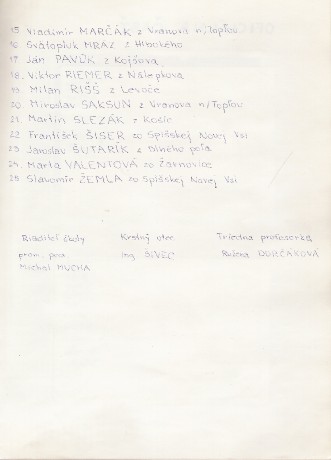 15 Vladimír MARČÁK z Vranova n/Topľou
16 Svätopluk MRAZ z Hlbokého
17 Ján PAVÚK z Kojšova
18. Viktor RIEMER z Nálepkova
19 Milan RIŠŠ z Levoče
20. Miroslav SAKSUN z Vranova n/Topľou
21. Martin SLEZÁK z Košíc
22 František ŠISER zo Spišskej Novej Vsi
23 Jaroslav ŠUTARÍK z Dlhého poľa
24. Marta VALENTOVÁ zo Žarnovice
25 Slavomír ŽEMLA zo Spišskej Novej Vsi
Riaditeľ školy Krstný otec Triedna profesorka
prom. ped. Ing. SIVEC Ružena
Michal MUCHA